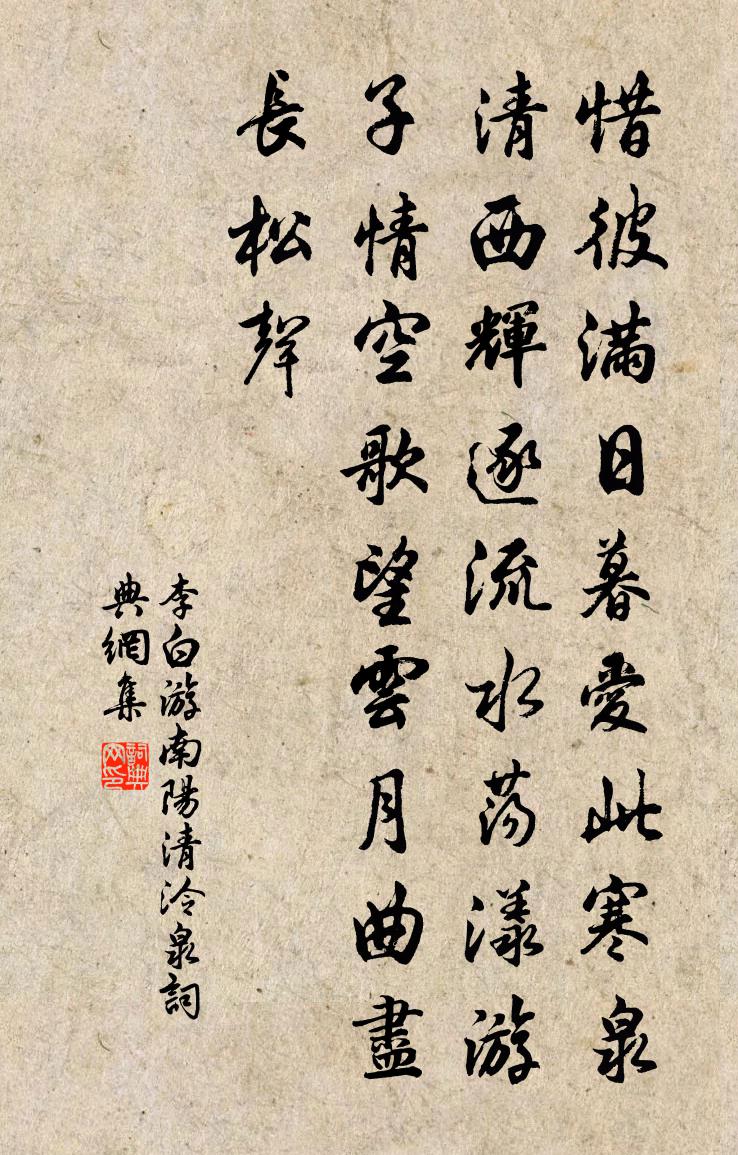 惜彼滿日暮愛此寒泉
清西輝逐流水蕩漾游
子情空歌望雲月曲盡
長松聲
李白游南陽清泠泉詞
典網集
詞典
网印